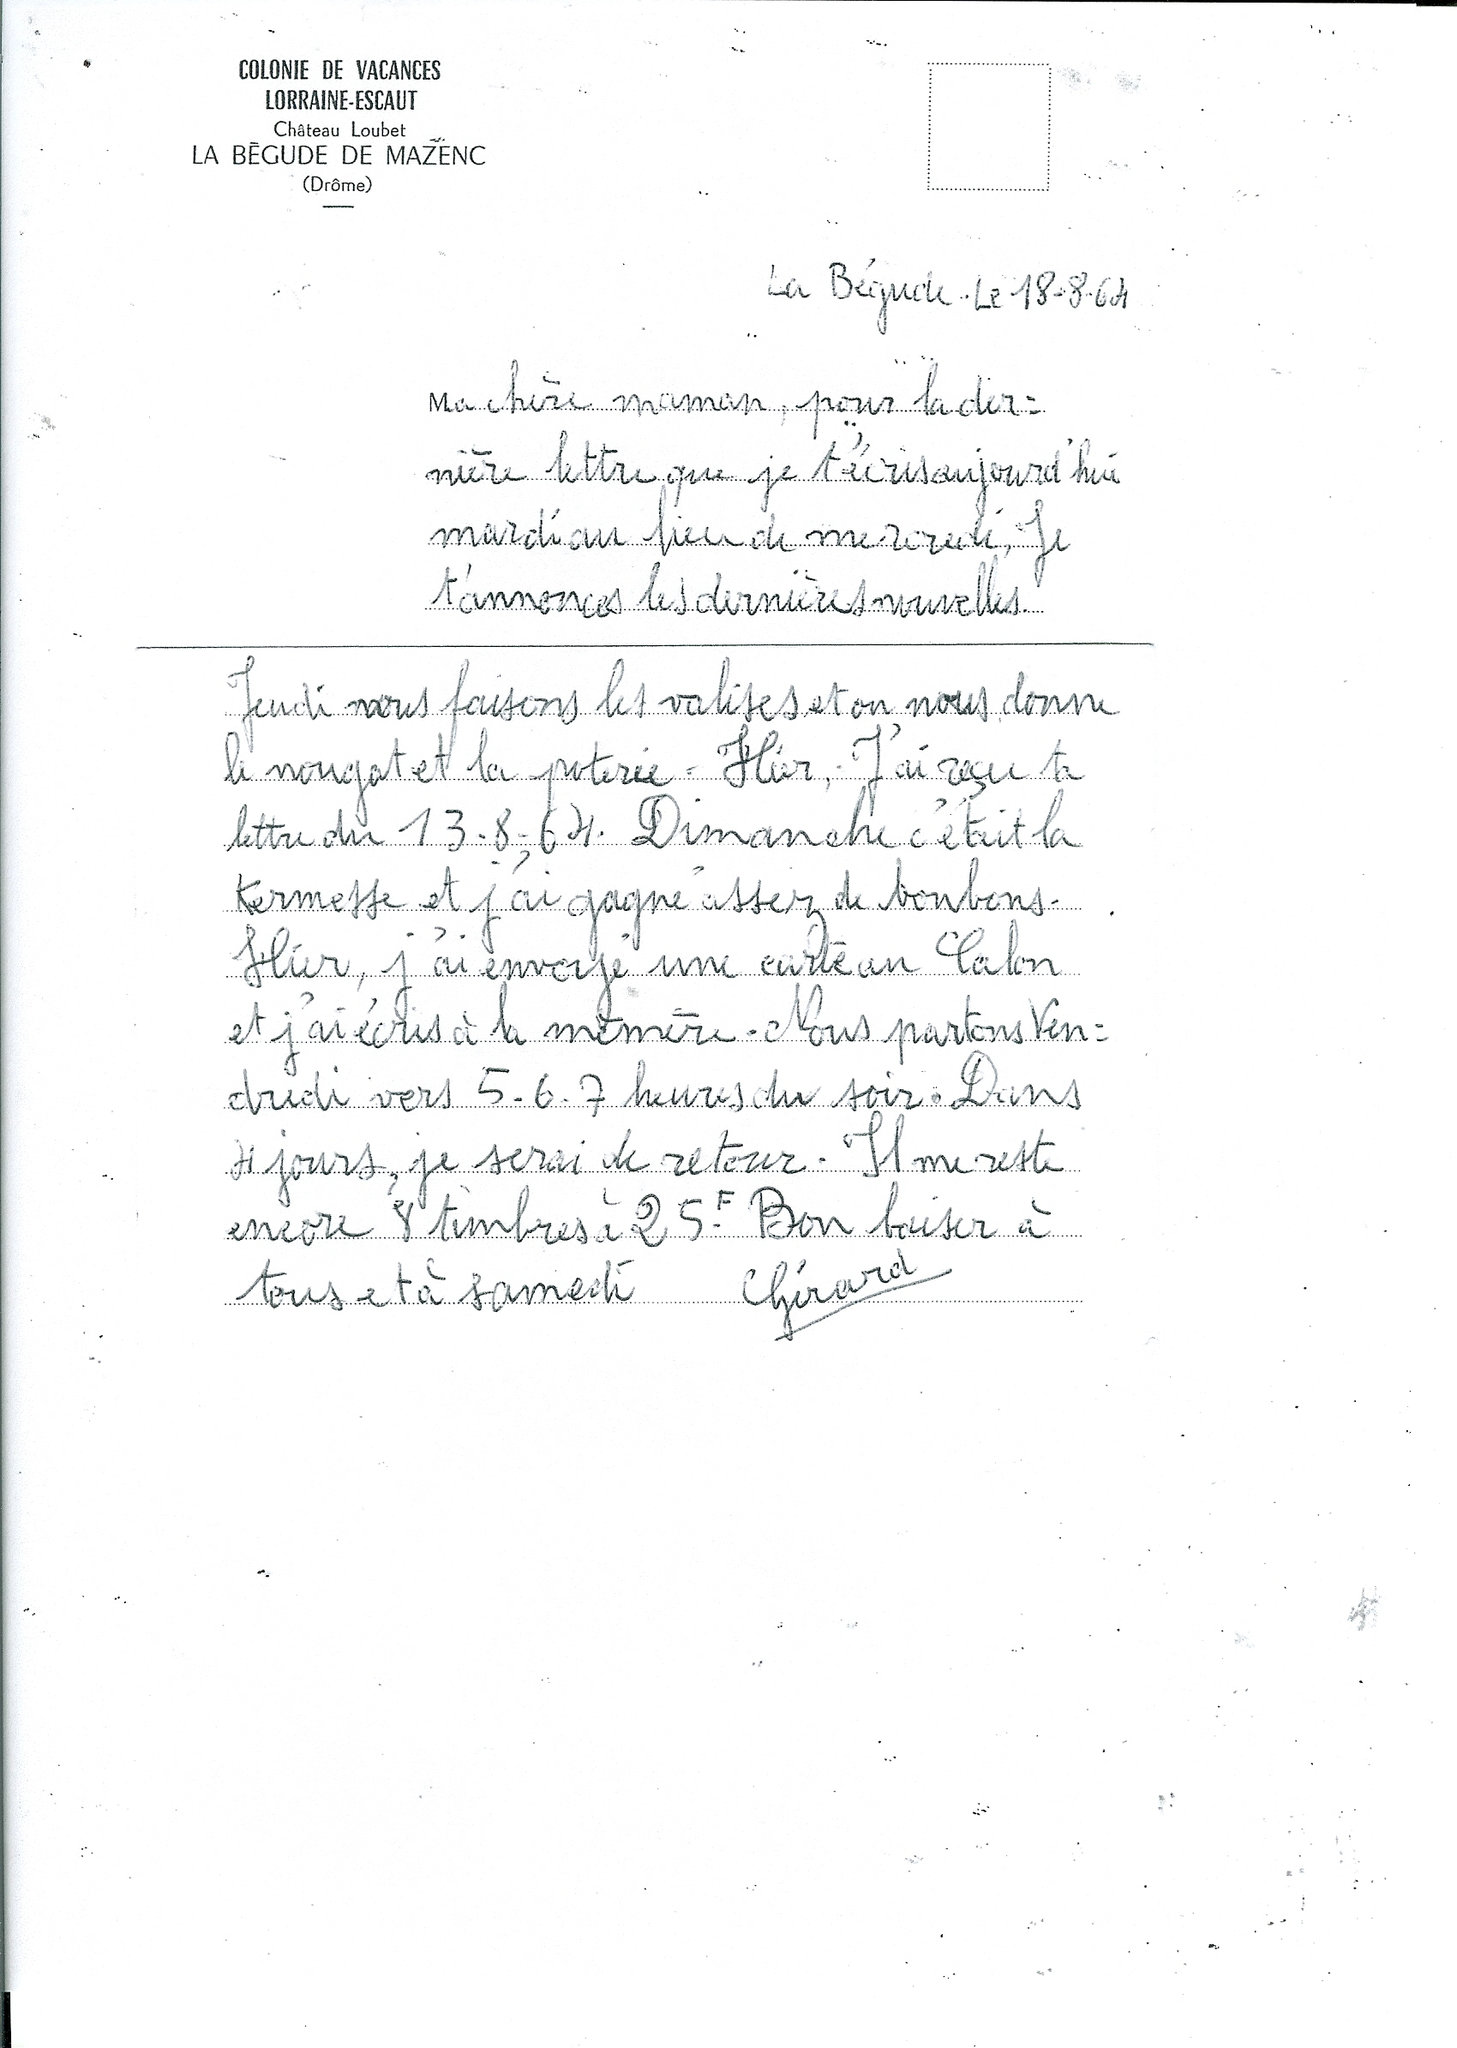 COLONIE DE VACANCES
LORRAINE-ESCAUT
Château Loubet
LA BÉGUDE DE MAZENC
(Drôme)
La Bégude. Le 18-8-64
Ma chère maman, pour la der=
nière lettre que je t'écris aujourd'hui
mardi au lieu de mercredi, Je
t'annonces les dernières nouvelles.
Jeudi nous faisons les valises et on nous donne
le nougat et la poterie - Hier, J'ai reçu ta
lettre du 13-8-64. Dimanche c'était la
Kermesse et j'ai gagné assez de bonbons.
Hier, j'ai envoyé une carte au Calon
et j'ai écris à la mémère. Nous partons Ven=
dredi vers 5-6-7 heures du soir. Dans
4 jours, je serai de retour. Il me reste
encore 8 timbres à 25F. Bon baiser à
tous et à samedi Gérard